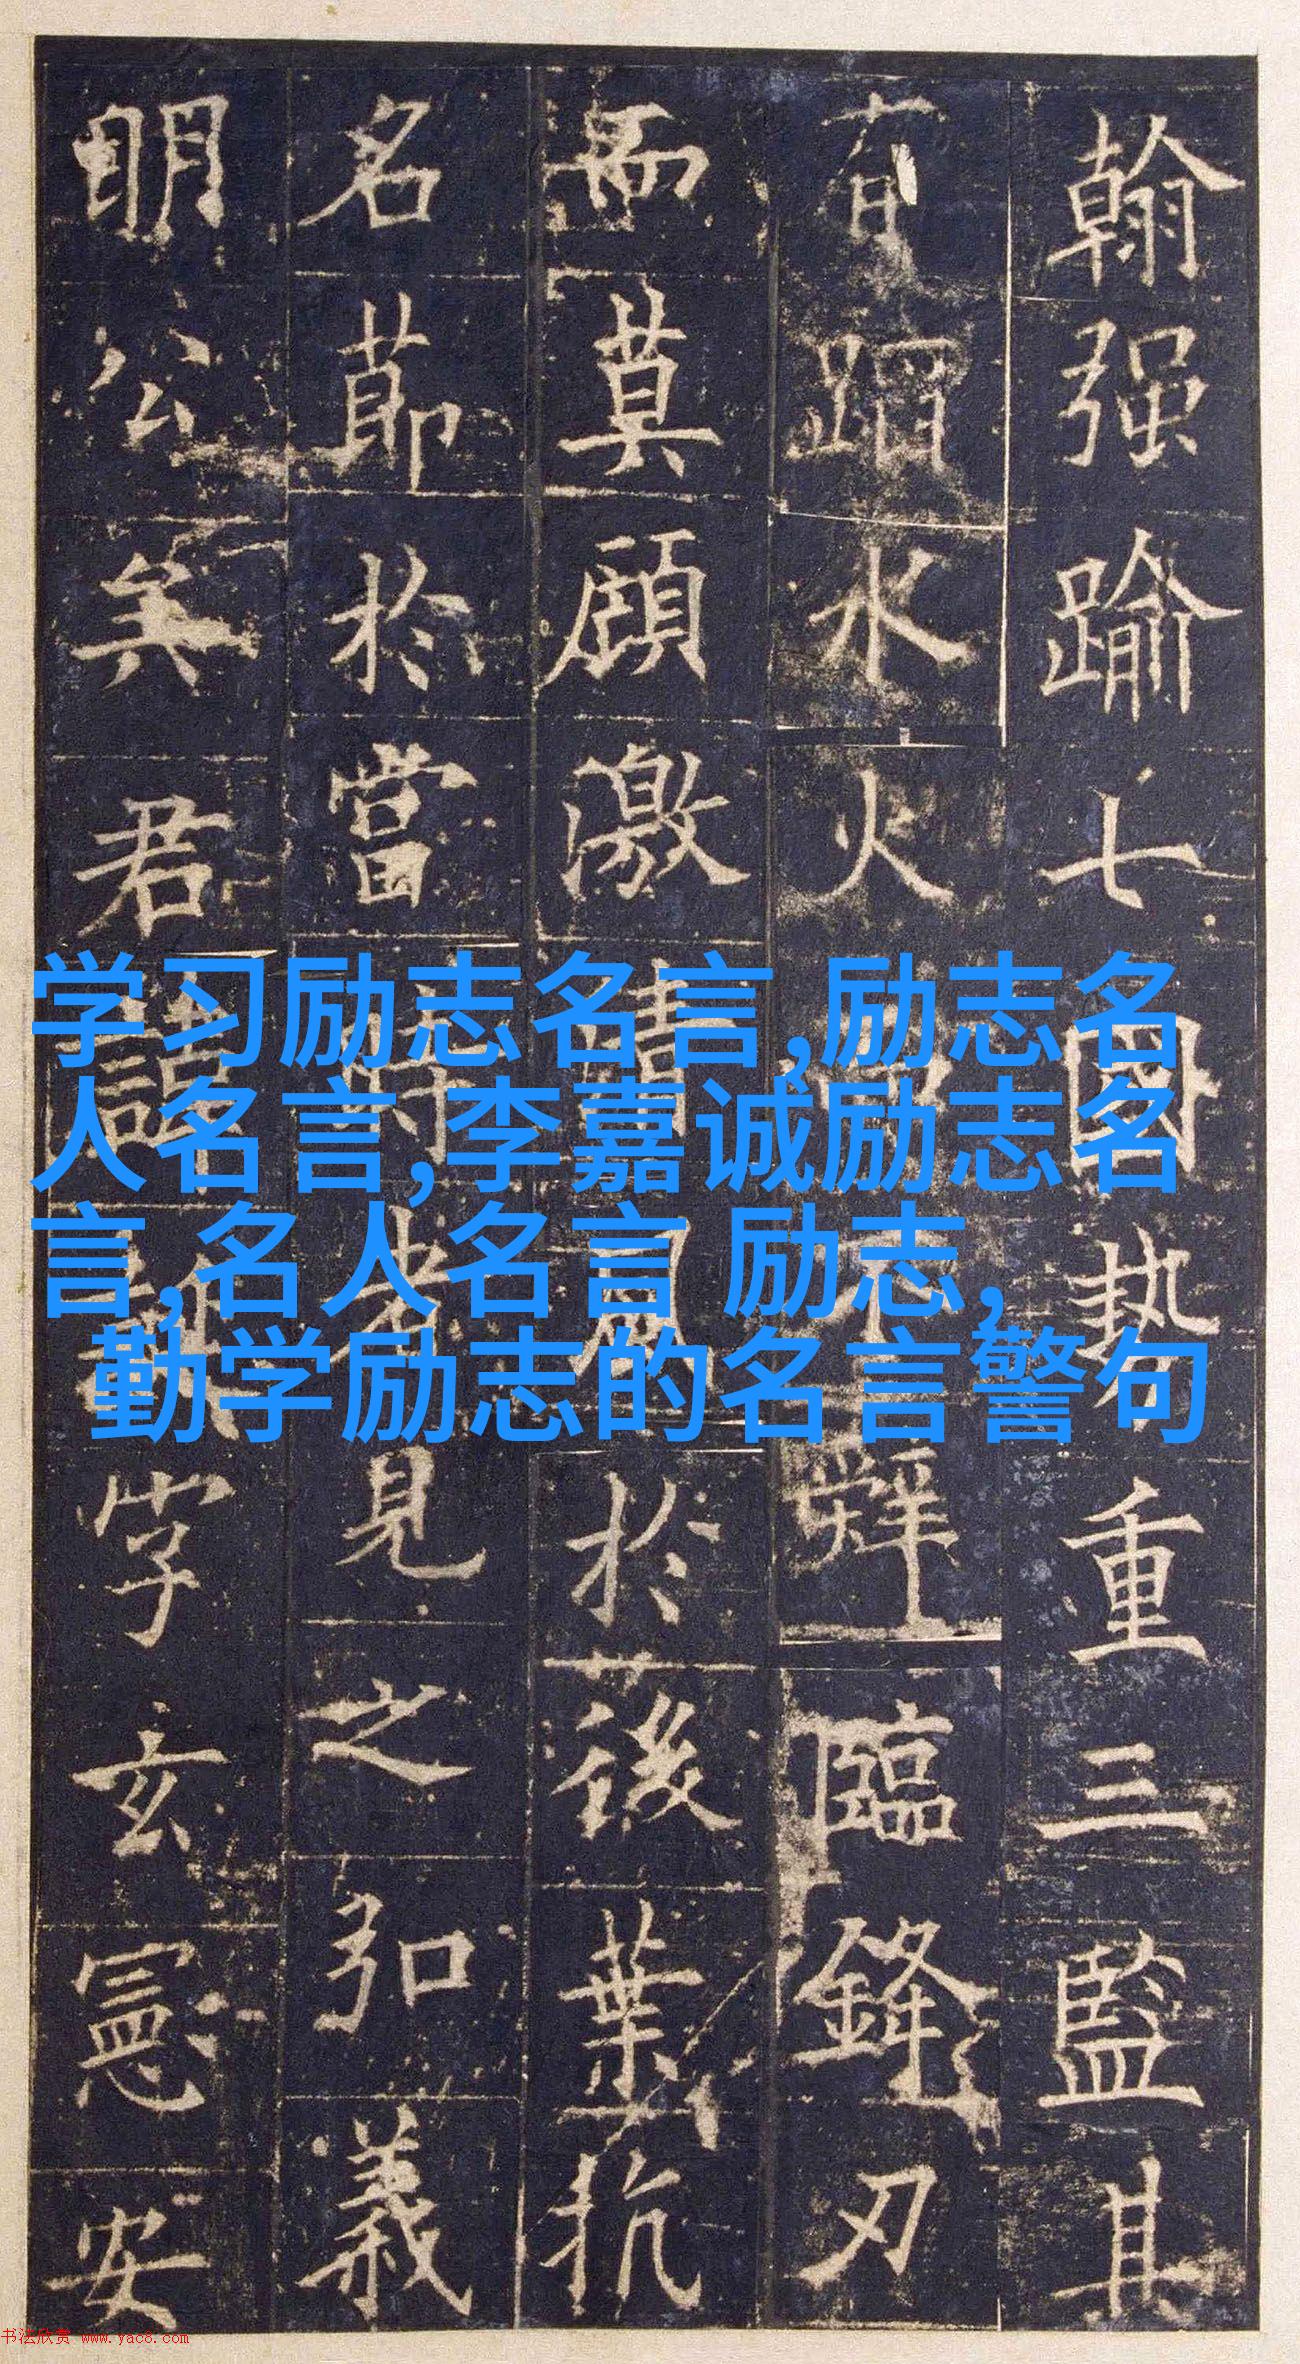 翰强踰七國勢重三監其
有蹈水火而不辭臨鋒刃
而莫顧激清風於後葉抗
名節於當時者見之弘義
明公矣君諱誕字玄憲安
学习励志名言,励志名
人名言,李嘉诚励志名
言,名人名言 励志,
勤学励志的名言警句
书法欣赏 www.yac8.com